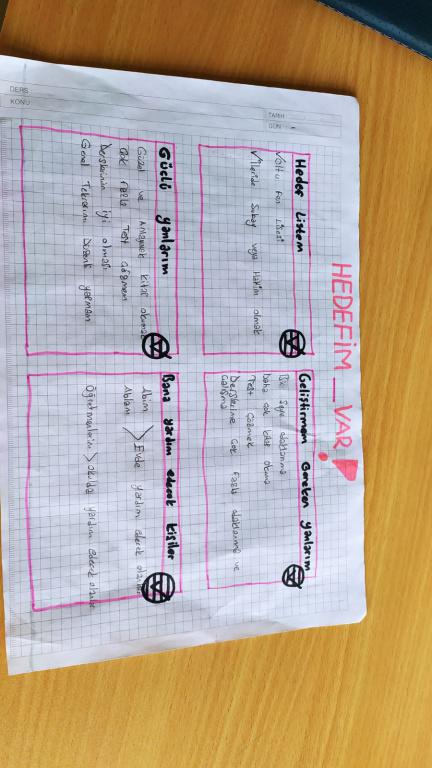 DERS
KONU
TARİH
GÜN
HEDEFİM VAR!
Hedef Listem
Fen Lisesi
İleride Subay veya Hakim olmak
Geliştirmem Gereken yanlarım
Bir şeye odaklanma
Daha çok kitap okuma
Test Çözmek
Derslerime Çok Fazla odaklanma ve
Çalışma
Güçlü yanlarım
Güzel ve Anlayarak kitap okumam
Çok Fazla Test Çözmem
Derslerimin iyi olması
Genel Tekrarımı Düzenli yapmam
Bana yardım edecek kişiler
Abim
Ablam > Evde yardım edecek olanlar
Öğretmenlerim > okulda yardım edecek olanlar